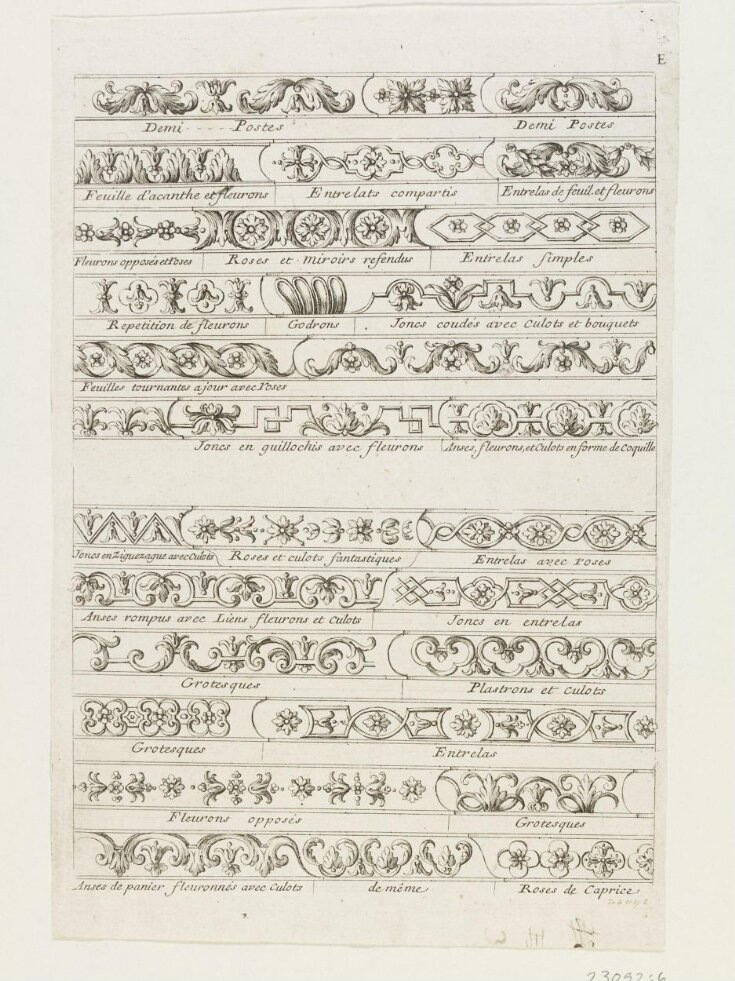 E
Demi Postes Demi Postes
Feuille d'acanthe et fleurons Entrelats compartis Entrelas de feuil. et fleurons
Fleurons opposés et Roses Roses et Miroirs refendus Entrelas simples
Repetition de fleurons Godrons Joncs coudés avec Culots et bouquets
Feuilles tournantes a jour avec roses
Joncs en guillochis avec fleurons Anses, fleurons, et Culots en forme de Coquille
Joncs en Ziguezague avec Culots Roses et culots fantastiques Entrelas avec roses
Anses rompus avec Liens fleurons et Culots Joncs en entrelas
Grotesques Plastrons et Culots
Grotesques Entrelas
Fleurons opposés Grotesques
Anses de panier fleuronnés avec Culots de même Roses de Caprice
23092
23092:6